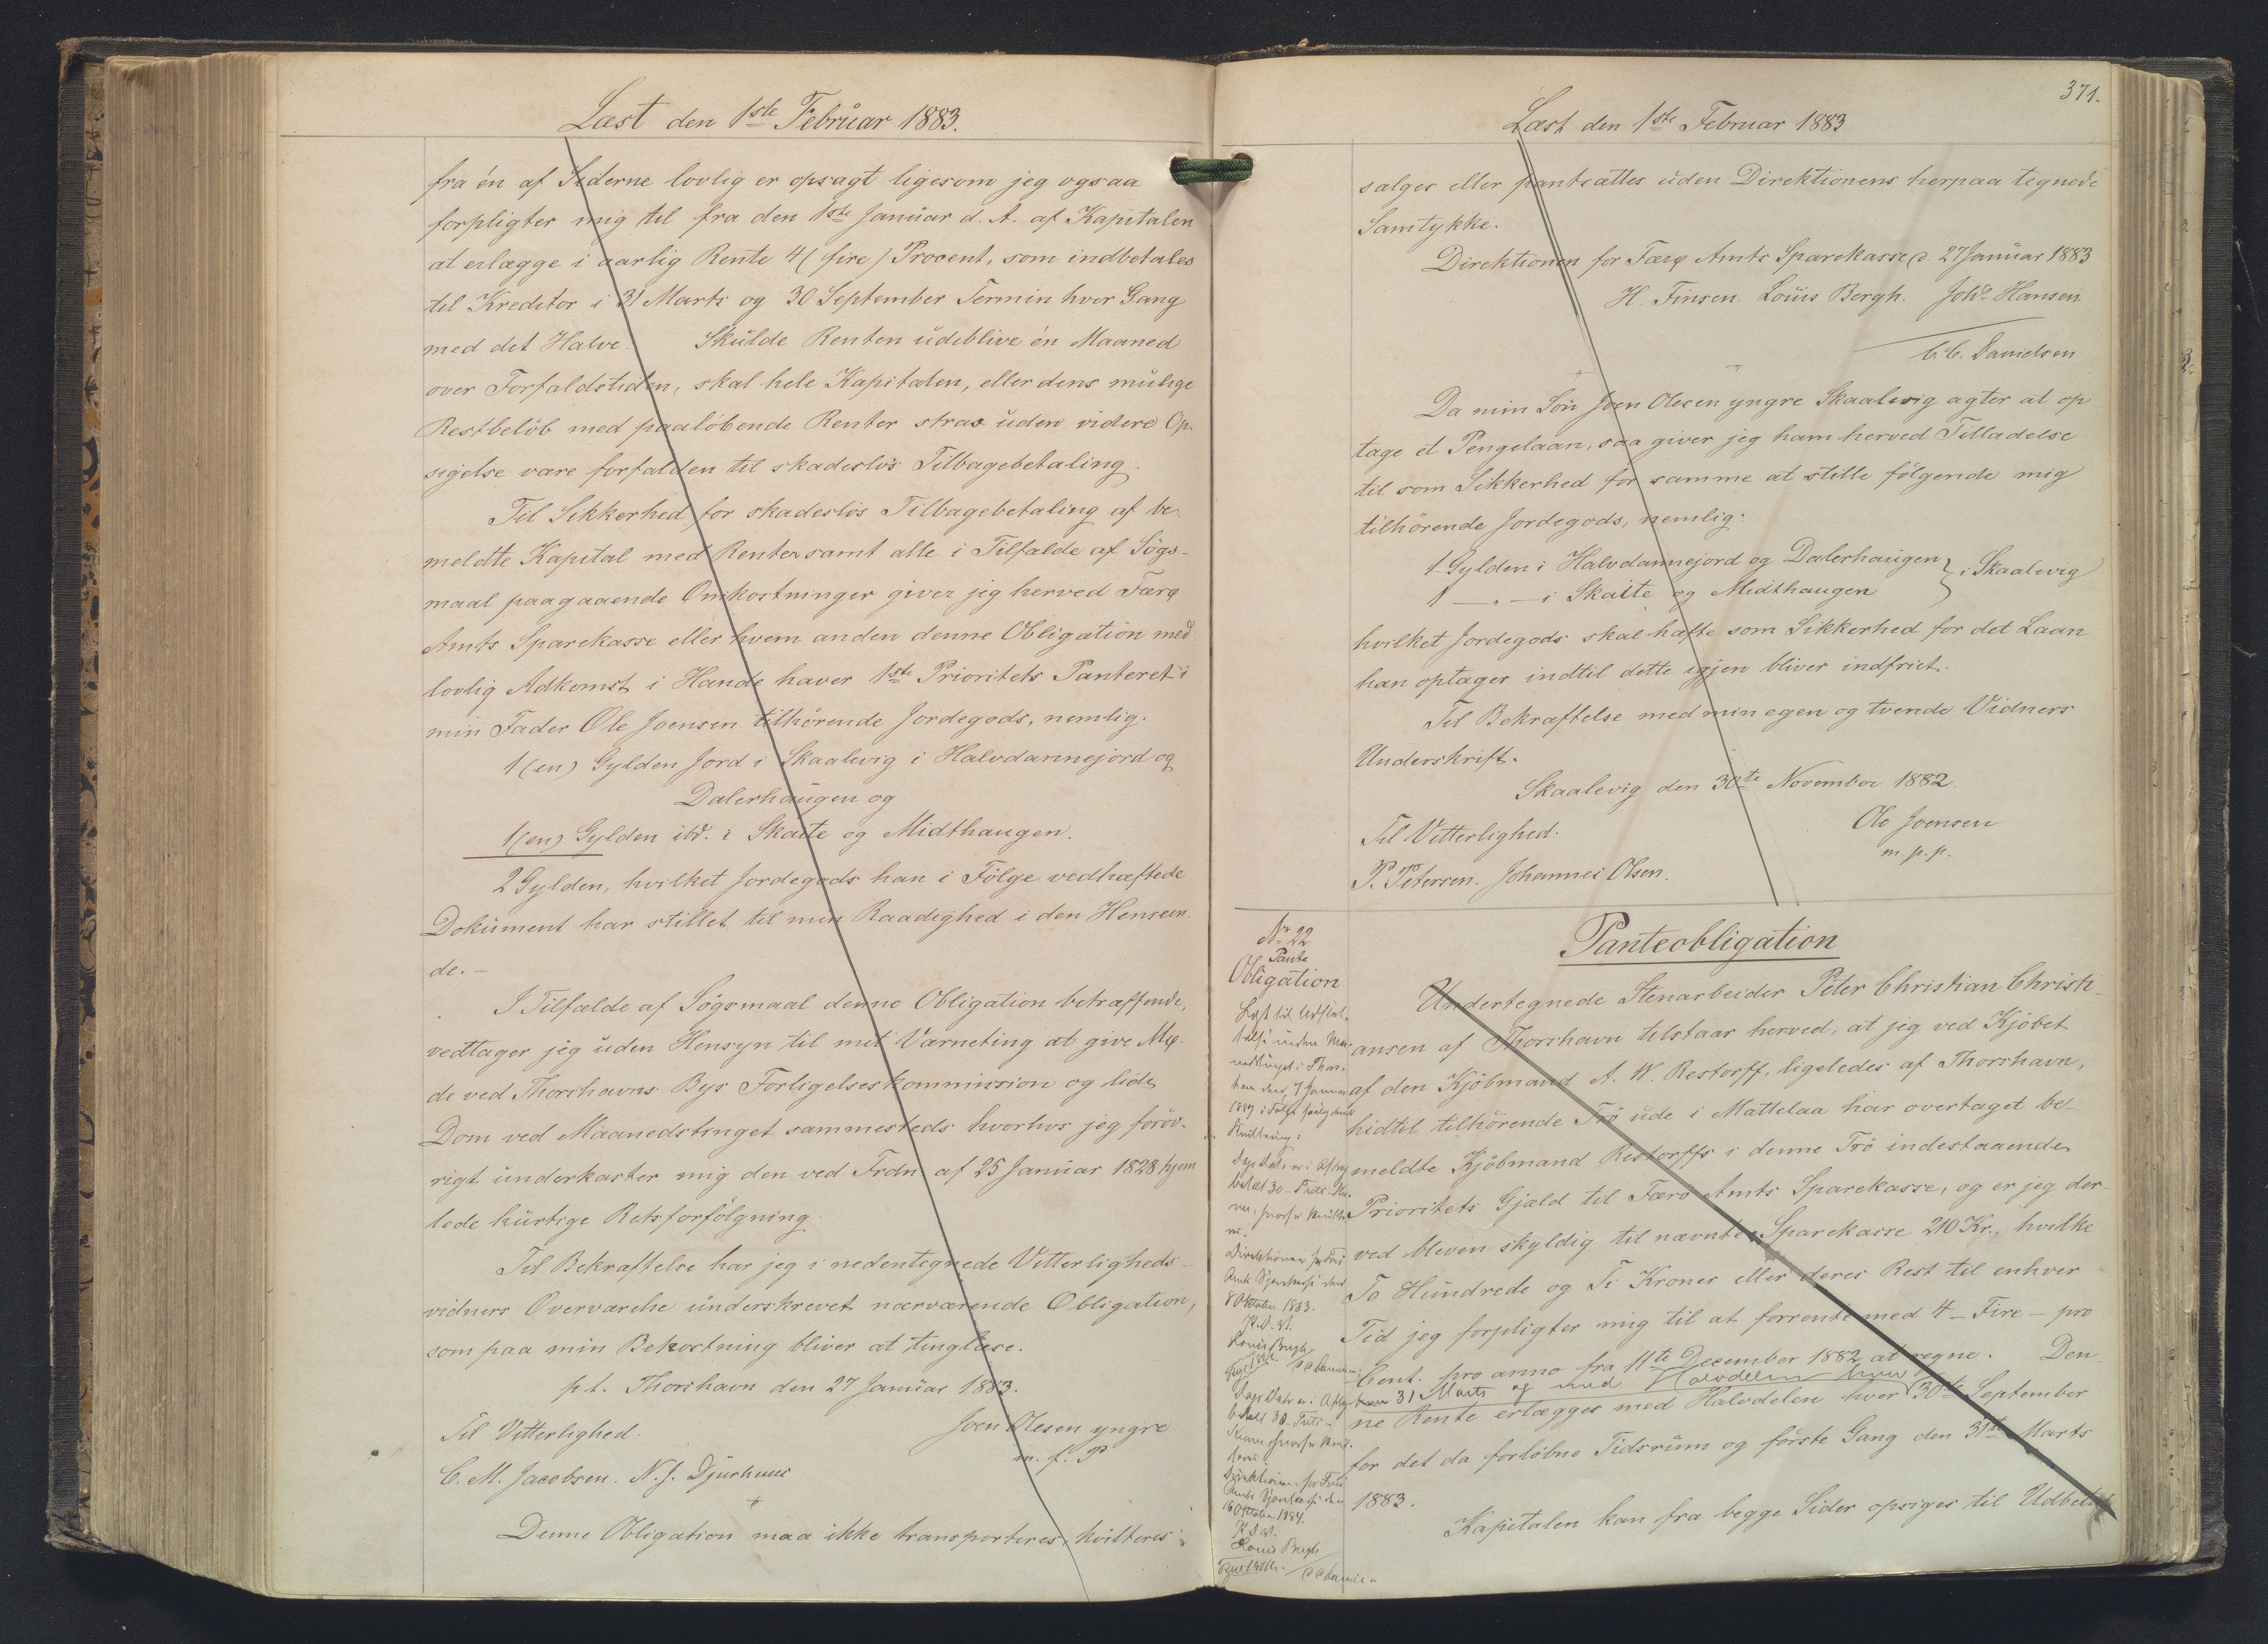 Læst den 1ste Februar 1883.
fra én af Siderne lovlig er opsagt ligesom jeg ogsaa
forpligter mig til fra den 1ste Januar d. A. af Kapitalen
at erlægge i aarlig Rente 4 (fire) Procent, som indbetales
til Kreditor i 31 Marts og 30 September Termin hver Gang
med det Halve. Skulde Renten udeblive én Maaned
over Forfaldstiden, skal hele Kapitalen, eller dens mulige
Restbeløb med paaløbende Renter strax uden videre Op-
sigelse være forfalden til skadesløs Tilbagebetaling.
Til Sikkerhed for skadesløs Tilbagebetaling af be-
meldte Kapital med Renter samt alle i Tilfælde af Søgs-
maal paagaaende Omkostninger giver jeg herved Færø
Amts Sparekasse eller hvem anden denne Obligation med
lovlig Adkomst i Hænde haver 1ste Prioritets Panteret i
min Fader Ole Joensen tilhørende Jordegods, nemlig:
1 (en) Gylden Jord i Skaalevig i Halvdannejord og
Dalerhaugen og
1 (en) Gylden ibd. i Skaite og Midthaugen.
2 Gylden, hvilket Jordegods han i Følge vedhæftede
Dokument har stillet til min Raadighed i den Henseen-
de. –
I Tilfælde af Søgsmaal denne Obligation betræffende,
vedtager jeg uden Hensyn til mit Værneting at give Mø-
de ved Thorshavns Bys Forligelseskommission og lide
Dom ved Maanedstinget sammesteds hvorhos jeg forøv-
rigt underkaster mig den ved Frdn af 25 Januar 1828 hjem
lede hurtige Retsforfølgning.
Til Bekræftelse har jeg i nedentegnede Vitterligheds-
vidners Overværelse underskrevet nærværende Obligation,
som paa min Bekostning bliver at tinglæse.
p.t. Thorshavn den 27 Januar 1883.
Til Vitterlighed. Joen Olesen yngre
C. M. Jacobsen. N. J. Djurhuus m. f. P
Denne Obligation maa ikke transporteres, kvitteres
371.
Læst den 1ste Februar 1883
sælges eller pantsættes uden Direktionens herpaa tegnede
Samtykke.
Direktionen for Færø Amts Sparekasse d. 27 Januar 1883
H. Finsen. Louis Bergh. Johs Hansen
C. C. Danielsen
Da min Søn Joen Olesen yngre Skaalevig agter at op
tage et Pengelaan, saa giver jeg ham herved Tilladelse
til som Sikkerhed for samme at stille følgende mig
tilhørende Jordegods, nemlig:
1 Gylden i Halvdannejord og Dalerhaugen } i Skaalevig
1 — " — i Skaite og Midthaugen
hvilket Jordegods skal hæfte som Sikkerhed for det Laan
han optager indtil dette igjen bliver indfriet.
Til Bekræftelse med min egen og tvende Vidners
Underskrift.
Skaalevig den 30te November 1882.
Til Vitterlighed. Ole Joensen
m. p. p.
P. Petersen. Johannes Olsen.
No 22
Pante
Obligation
Direktionen for Færø
Amts Sparekasse den
8 Oktober 1883.
Louis Bergh
Direktionen for Færø
Amts Sparekasse den
16 Oktober 1884.
Louis Bergh
Panteobligation
Undertegnede Stenarbeider Peter Christian Christi-
ansen af Thorshavn tilstaar herved, at jeg ved Kjøbet
af den Kjøbmand A. W. Restorff, ligeledes af Thorshavn,
hidtil tilhørende Trø ude i Mattelaa har overtaget be-
meldte Kjøbmand Restorffs i denne Trø indestaaende
Prioritets Gjæld til Færø Amts Sparekasse, og er jeg der-
ved bleven skyldig til nævnte Sparekasse 210 Kr., hvilke
To Hundrede og Ti Kroner eller deres Rest til enhver
Tid jeg forpligter mig til at forrente med 4 – Fire – pro
Cent. pro anno fra 11te December 1882 at regne. Den-
31 Marts og med Halvdelen hver
ne Rente erlægges med Halvdelen hver 30te September
for det da forløbne Tidsrum og første Gang den 31te Marts
1883.
Kapitalen kan fra begge Sider opsiges til Udbetal